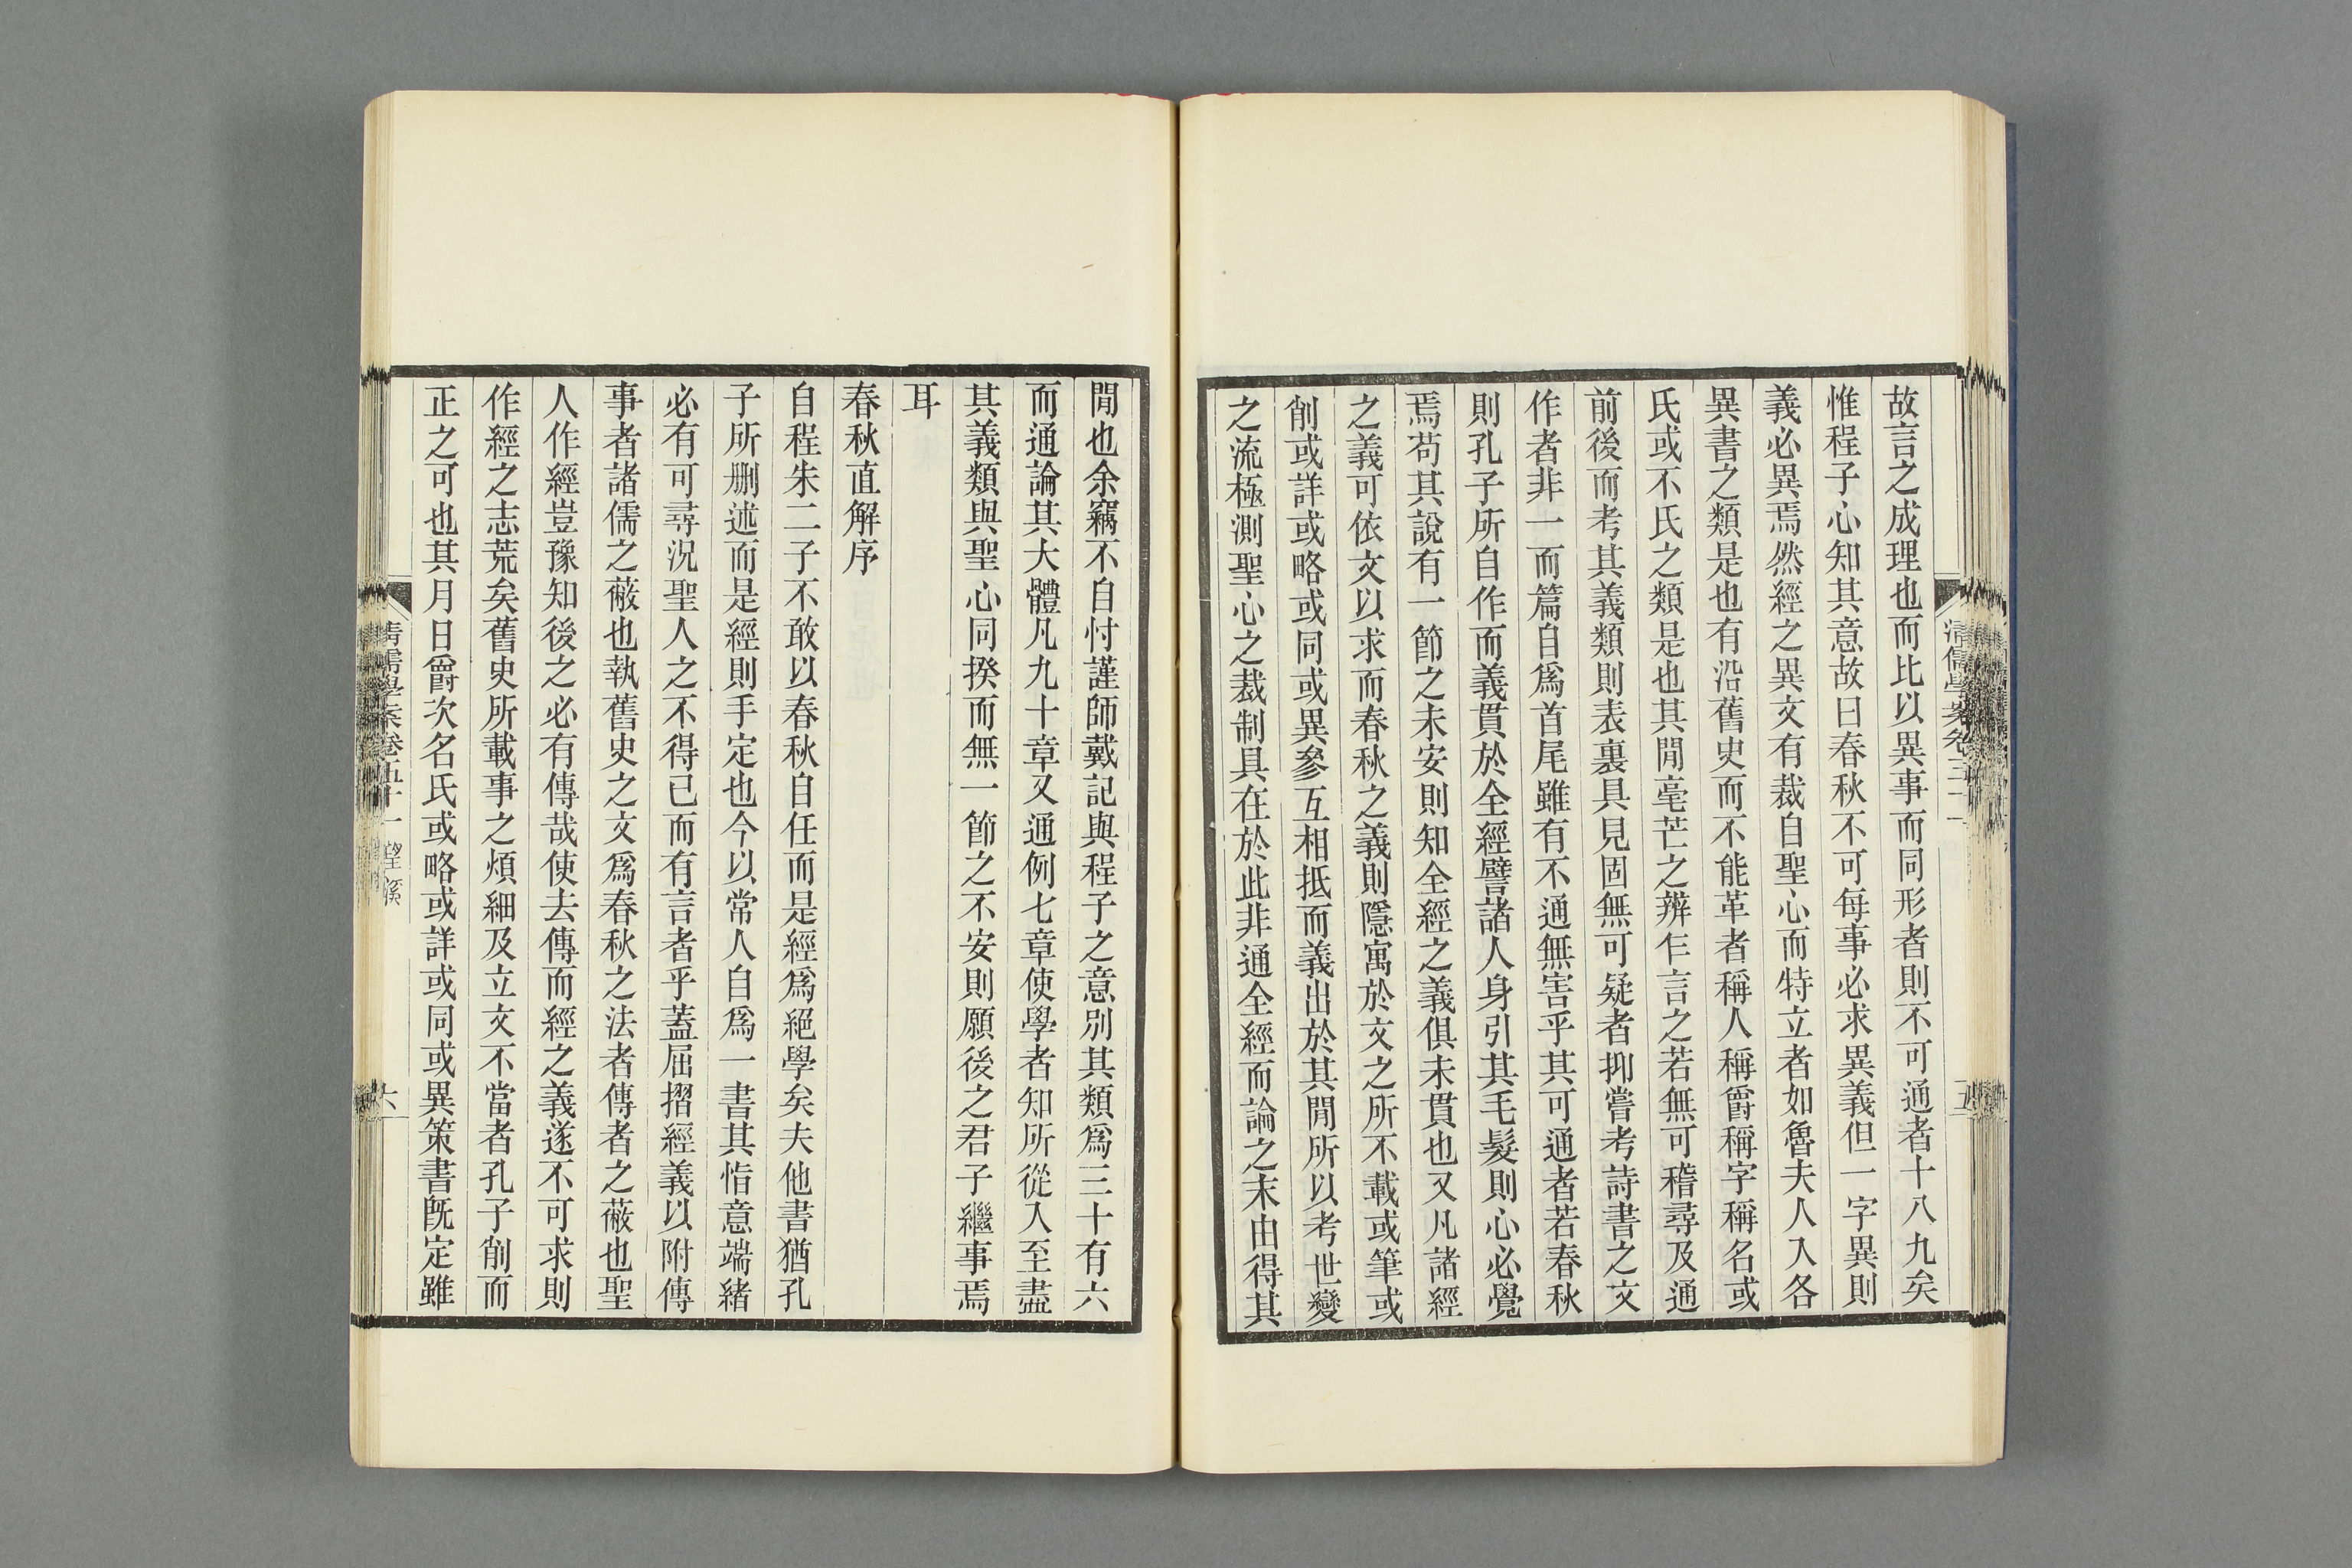 故言之成理也而比以異事而同形者則不可通者十八九矣
惟程子心知其意故曰春秋不可每事必求異義但一字異則
義必異焉然經之異文有裁自聖心而特立者如魯夫人入各
異書之類是也有沿舊史而不能革者稱人稱爵稱字稱名或
氏或不氏之類是也其閒毫芒之辨乍言之若無可稽尋及通
前後而考其義類則表裏具見固無可疑者抑嘗考詩書之文
作者非一而篇自爲首尾雖有不通無害乎其可通者若春秋
則孔子所自作而義貫於全經譬諸人身引其毛髮則心必覺
焉苟其說有一節之未安則知全經之義俱未貫也又凡諸經
之義可依文以求而春秋之義則隱寓於文之所不載或筆或
削或詳或略或同或異參互相抵而義出於其閒所以考世變
之流極測聖心之裁制具在於此非通全經而論之末由得其
閒也余竊不自忖謹師戴記與程子之意別其類爲三十有六
而通論其大體凡九十章又通例七章使學者知所從入至盡
其義類與聖心同揆而無一節之不安則願後之君子繼事焉
耳
春秋直解序
自程朱二子不敢以春秋自任而是經爲絕學矣夫他書猶孔
子所刪述而是經則手定也今以常人自爲一書其恉意端緒
必有可尋況聖人之不得已而有言者乎蓋屈摺經義以附傳
事者諸儒之蔽也執舊史之文爲春秋之法者傳者之蔽也聖
人作經豈豫知後之必有傳哉使去傳而經之義遂不可求則
作經之志荒矣舊史所載事之煩細及立文不當者孔子削而
正之可也其月日爵次名氏或略或詳或同或異策書既定雖
清儒學案卷五十一 望溪
六